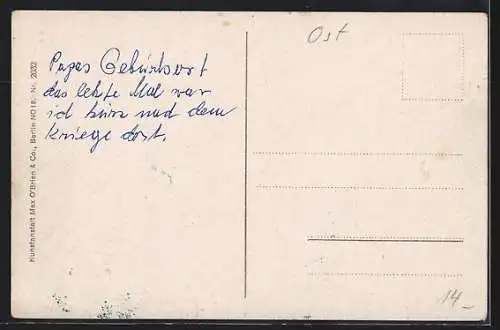 Papas Geburtsort
das letzte Mal war
ich kurz nach dem
Kriege dort.
Ost
14.-
Kunstanstalt Max O'Brien & Co., Berlin NO 18. Nr. 2002